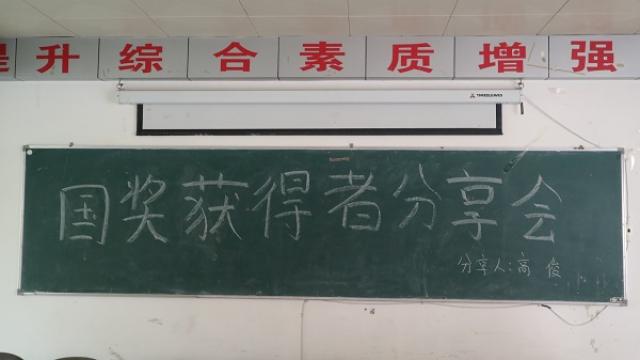 提升综合素质增强
THREELEAVES
国奖获得者分享会
分享人:高 俊